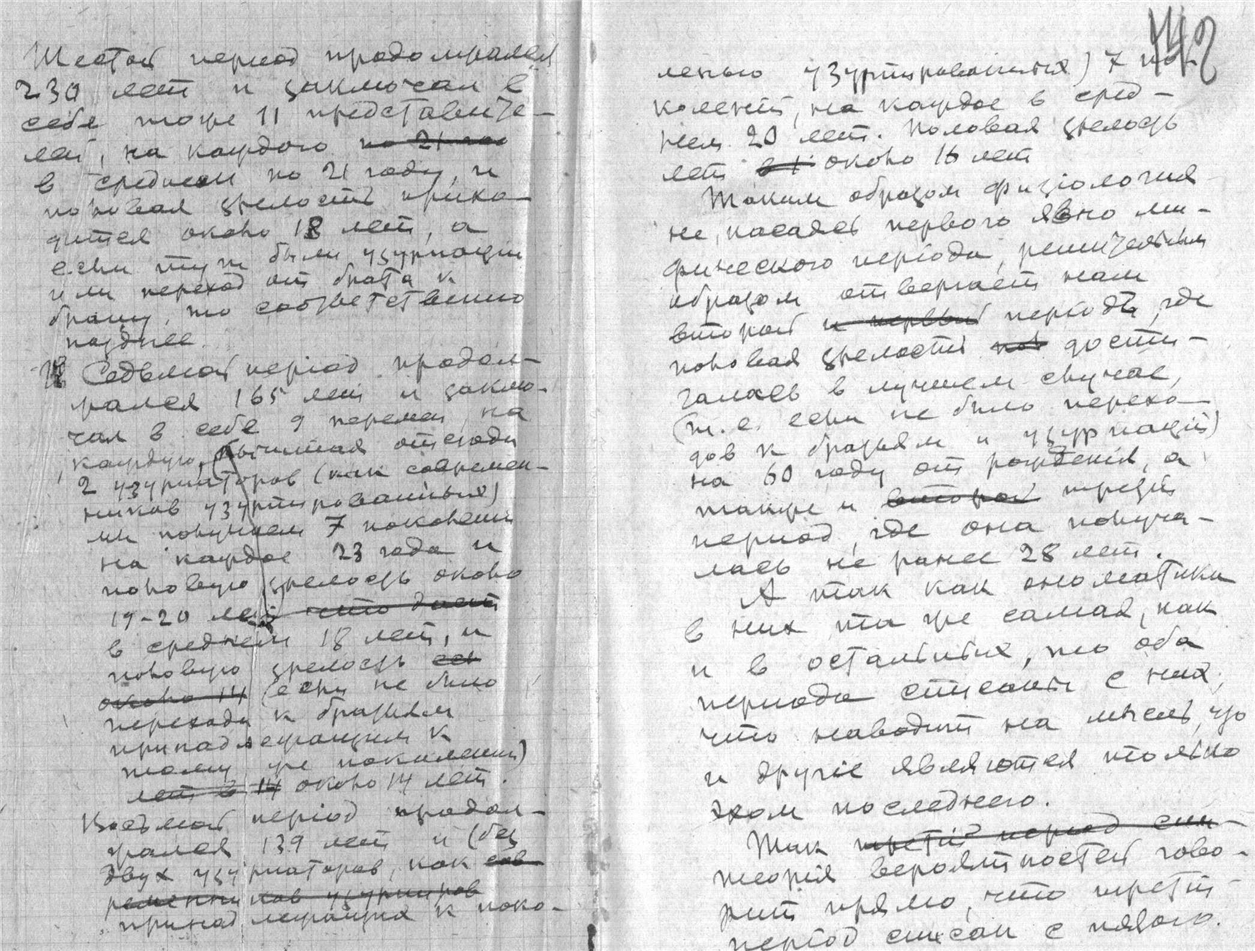 Шестой период продолжался
230 лет и заключал в
себе тоже 11 представите-
лей, на каждого по 21 го
в среднем по 21 году, и
половая зрелость прихо-
дится около 18 лет, а
если тут были узурпации
или переход от брата к
брату, то соответственно
позднее.
Седьмой период продол-
жался 165 лет и заклю-
чал в себе 9 перемен, на
каждую, вычитая отсюда
2 узурпаторов (как современ-
ников узурпированных)
мы получаем 7 поколений
на каждое 23 года и
половую зрелость около
19-20 лет что дает
в среднем 18 лет, и
половую зрелость
около 14 (если не было
перехода к братьям
принадлежащим к
тому же поколению)
лет в 14 около 14 лет.
Восьмой период продол-
жался 139 лет и (без
двух узурпаторов, как сов
ременников узурпиров
принадлежащих к поко-
742
лению узурпированных) 7 по-
колений, на каждое в сред-
нем 20 лет. Половая зрелость
лет около 16 лет
Таким образом физіология
не, касаясь первого явно ми-
фического періода, решительным
образом отвергает нам
второй и первый періодъ, где
половая зрелость дости-
галась в лучшем случае,
(т.е. если не было перехо-
дов к братьям и узурпаций)
на 60 году от рождения, а
также и второй третій
период, где она получа-
лась не ранее 28 лет.
А так как ономатика
в них та же самая, как
и в остальных, то оба
периода списаны с них,
что наводит на мысль, что
и другіе являются только
эхом последнего.
Так третій период спи-
теорія вероятностей гово-
рит прямо, что третій
період списан с пятого.